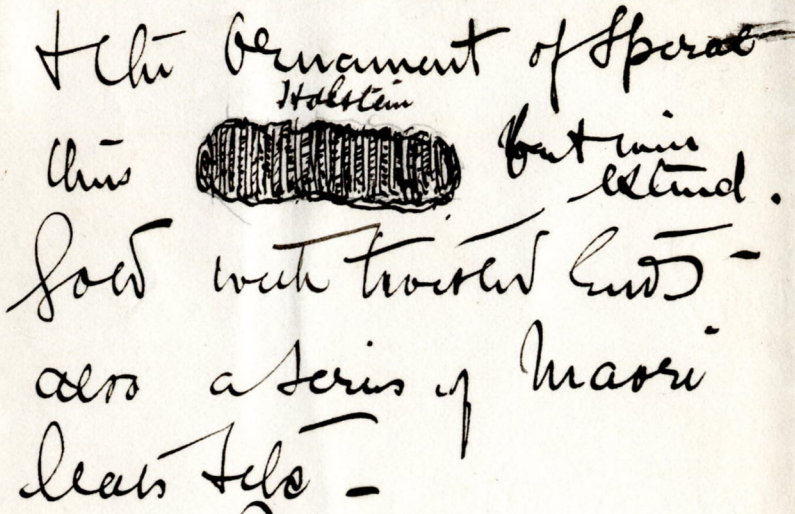 & the Ornament of Spiral
Holstein
thus
but wire
extend.
Gold with twisted Ends -
also a series of Maori
heads &c -